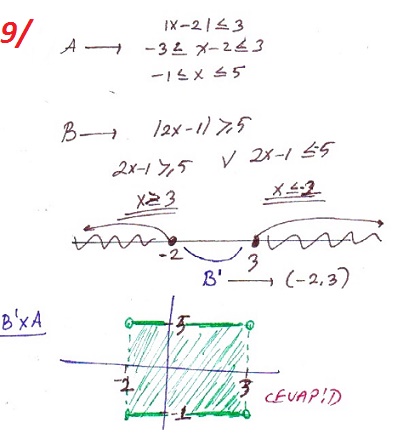 9/
A → |x-2| ≤ 3
-3 ≤ x-2 ≤ 3
-1 ≤ x ≤ 5
B → |2x-1| ≥ 5
2x-1 ≥ 5 V 2x-1 ≤ -5
x ≥ 3 x ≤ -2
-2 3
B' → (-2, 3)
B'xA
5
-2 3
-1
CEVAP: D